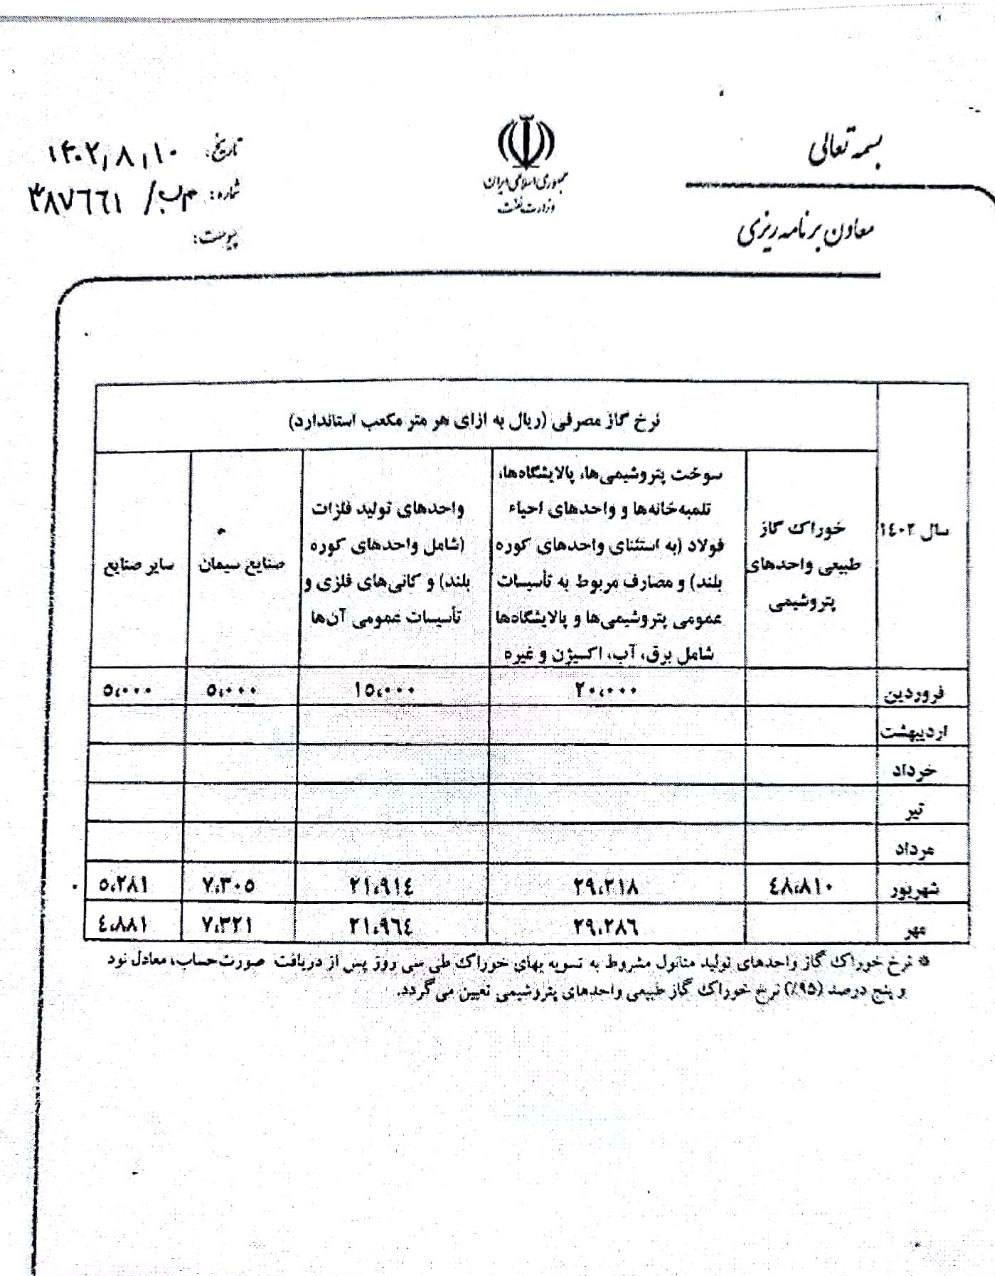 بسمه تعالی
معاون برنامه ریزی
جمهوری اسلامی ایران
وزارت نفت
تاریخ: ۱۴۰۲٫۸٫۱۰
شماره: م‌ب/ ۳۸۷۶۶۱
پیوست:
نرخ گاز مصرفی (ریال به ازای هر متر مکعب استاندارد)
سال ۱۴۰۲
خوراک گاز
طبیعی واحدهای
پتروشیمی
سوخت پتروشیمی‌ها، پالایشگاه‌ها،
تلمبه‌خانه‌ها و واحدهای احیاء
فولاد (به استثنای واحدهای کوره
بلند) و مصارف مربوط به تأسیسات
عمومی پتروشیمی‌ها و پالایشگاه‌ها
شامل برق، آب، اکسیژن و غیره
واحدهای تولید فلزات
(شامل واحدهای کوره
بلند) و کانی‌های فلزی و
تأسیسات عمومی آن‌ها
صنایع سیمان
سایر صنایع
فروردین ۲۰،۰۰۰ ۱۵،۰۰۰ ۵،۰۰۰ ۵،۰۰۰
اردیبهشت
خرداد
تیر
مرداد
شهریور ۴۸،۸۱۰ ۲۹،۲۱۸ ۲۱،۹۱۴ ۷،۳۰۵ ۵،۲۸۱
مهر ۲۹،۲۸۶ ۲۱،۹۶۴ ۷،۳۲۱ ۴،۸۸۱
* نرخ خوراک گاز واحدهای تولید متانول مشروط به تسویه بهای خوراک طی سی روز پس از دریافت صورت‌حساب، معادل نود
و پنج درصد (۹۵٪) نرخ خوراک گاز طبیعی واحدهای پتروشیمی تعیین می‌گردد.